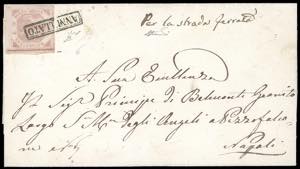 ANNULLATO
Per la strada ferrata
A Sua Eccellenza
Il Sig.r Principe di Belmonte Granito
Largo S. M. degli Angeli a Pizzofalco-
ne n.
Napoli